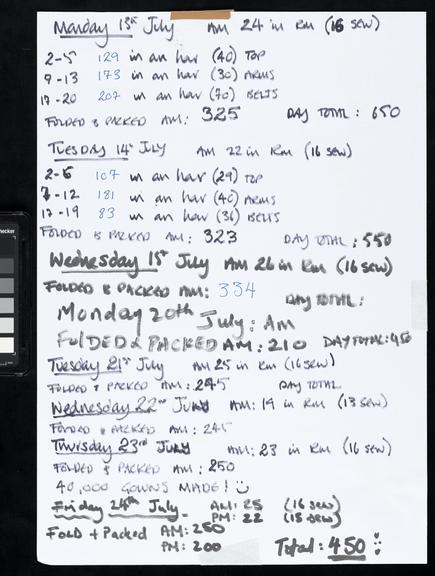 Monday 13th July AM 24 in Rm (16 sew)
2-5 129 in an har (40) TOP
9-13 173 in an har (30) ARMS
17-20 207 in an har (70) BELTS
FOLDED & PACKED AM: 325 DAY TOTAL: 650
TUESDAY 14th JULY AM 22 in Rm (16 sew)
2-6 107 in an har (29) TOP
7-12 181 in an har (40) ARMS
17-19 83 in an har (36) BELTS
FOLDED & PACKED AM: 323 DAY TOTAL: 550
Wednesday 15th July AM 26 in Rm (16 sew)
FOLDED & PACKED AM: 334 DAY TOTAL:
Monday 20th July: AM
FOLDED & PACKED AM: 210 DAY TOTAL: 450
Tuesday 21st July AM 25 in Rm (16 sew)
FOLDED & PACKED AM: 245 DAY TOTAL
Wednesday 22nd July AM: 19 in Rm (13 sew)
FOLDED & PACKED AM: 245
Thursday 23rd July AM: 23 in Rm (16 sew)
FOLDED & PACKED AM: 250
40,000 GOWNS MADE!
Friday 24th July AM: 25 (16 sew)
PM: 22 (15 sew)
Fold + Packed AM: 250
PM: 200 Total: 450